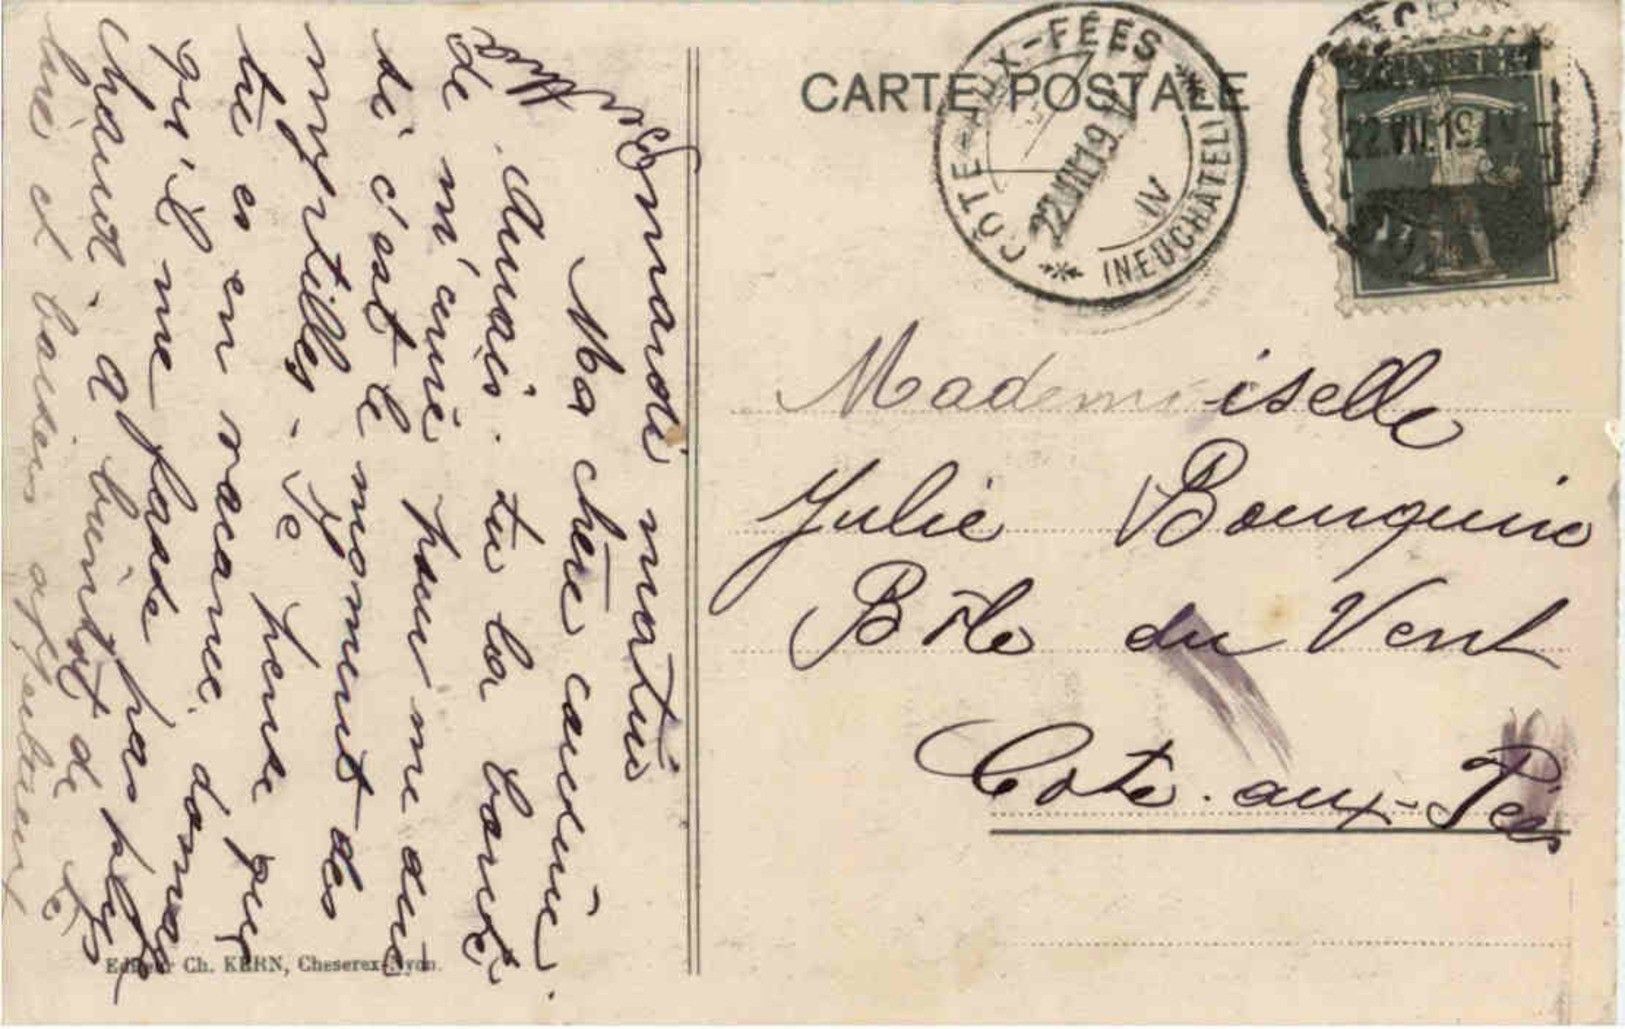 CARTE POSTALE
CÔTE-AUX-FÉES
22.VII.19
IV
(NEUCHÂTEL)
22.VII.19
Mademoiselle
Julie Bourquin
Bôle du Vent
Côte-aux-Fées
mardi matin
Ma chère cousine.
Aurais-tu la bonté
de m'écrire pour me dire
si c'est le moment des
myrtilles. Je pense que
tu es en vacance. domage
qu'il ne fasse pas plus
chaud. a bientôt de tes
et baisers affectueux
Editeur Ch. KERN, Cheserex-Nyon.